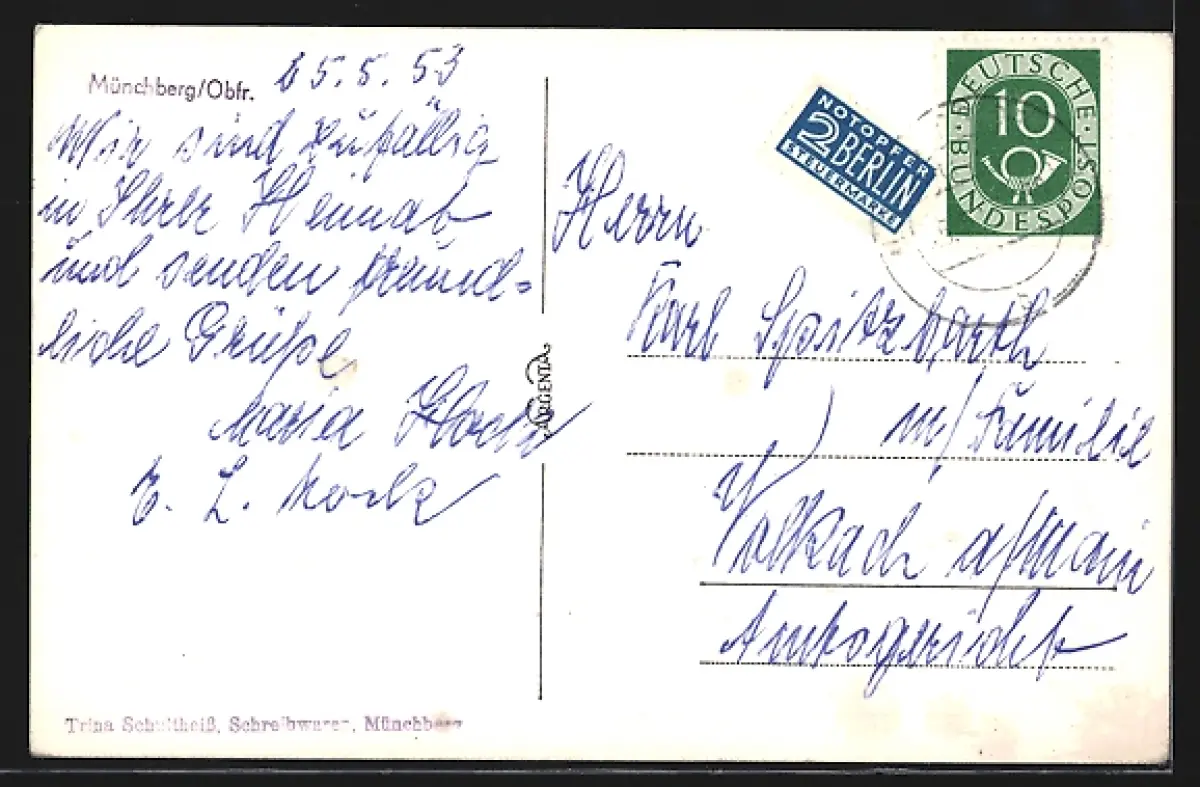 Münchberg/Obfr. 25.5.53
Wir sind zufällig
in Ihrer Heimat
und senden freund-
liche Grüße
Maria
E. L.
ARGENTA
NOTOPFER
2 BERLIN
STEUERMARKE
DEUTSCHE BUNDESPOST
10
Herrn
Karl Spitzbarth
m/Familie
Volkach a/Main
Amtsgericht
Trina Schultheiß, Schreibwaren, Münchberg